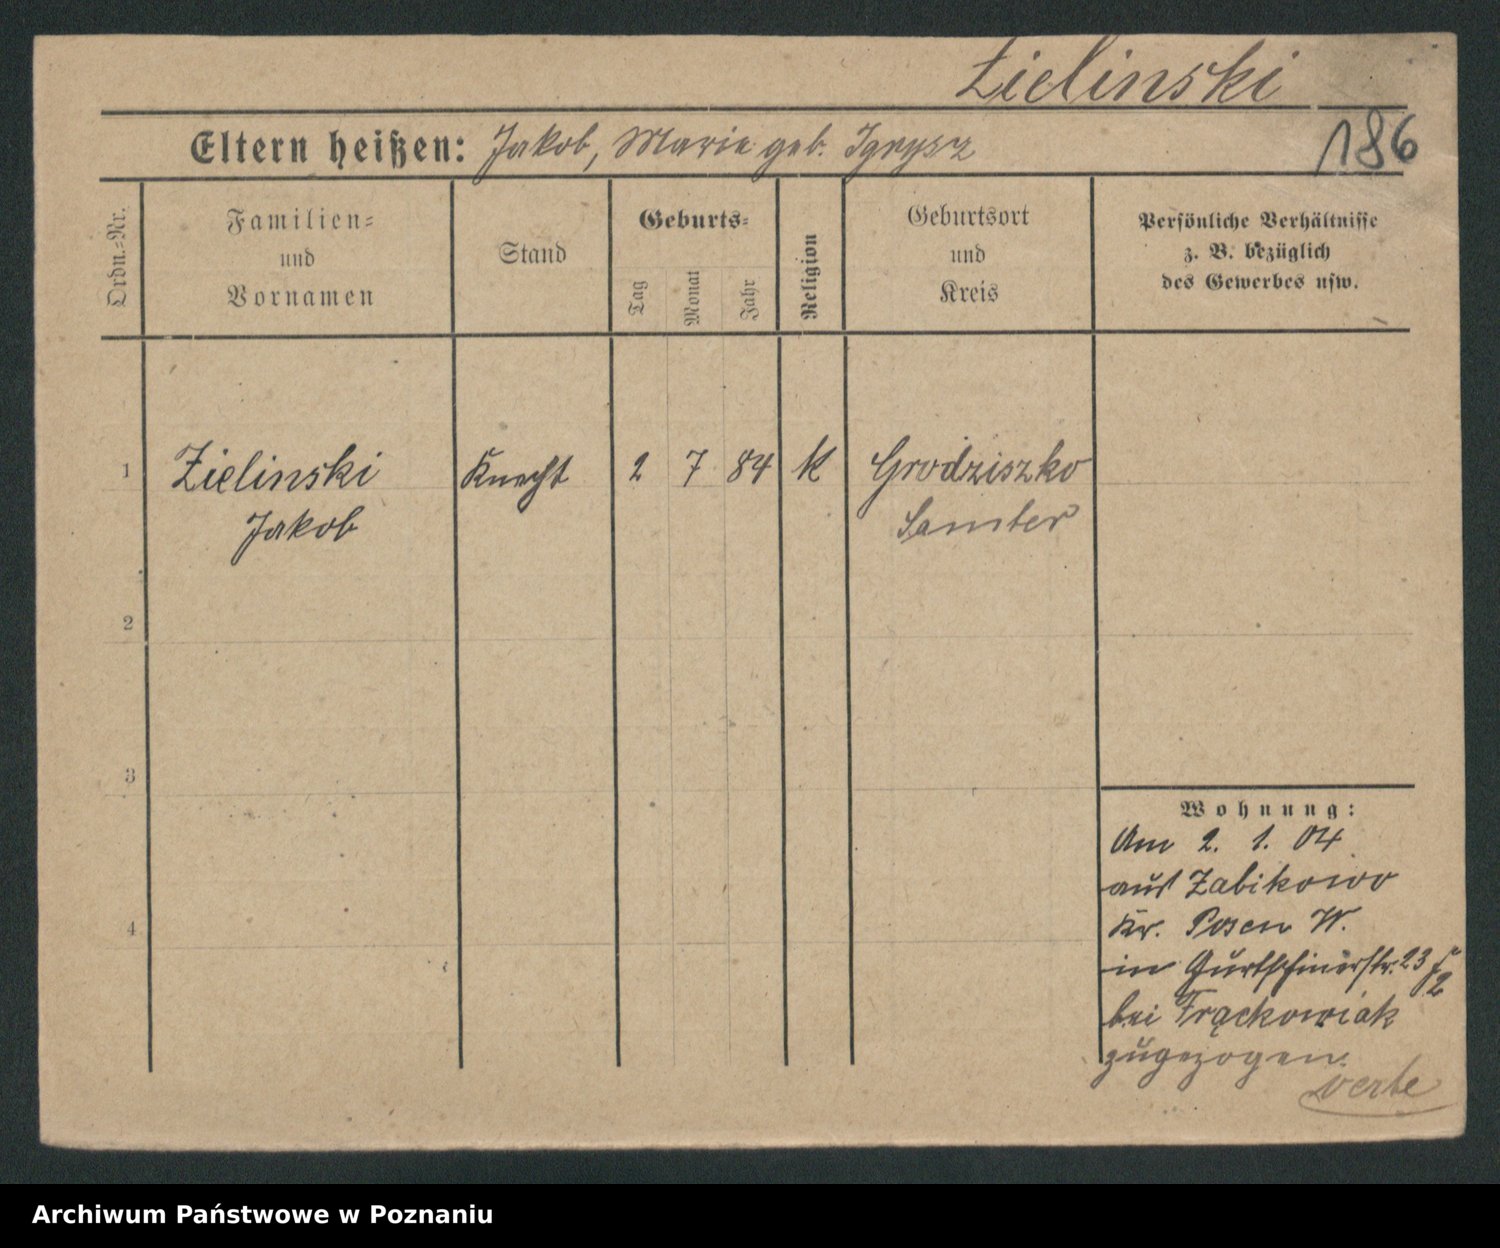 Zielinski
186
Eltern heißen: Jakob, Marie geb. Igrysz
Ordn.-Nr.
Familien-
und
Vornamen
Stand
Geburts-
Tag
Monat
Jahr
Religion
Geburtsort
und
Kreis
Persönliche Verhältnisse
z. B. bezüglich
des Gewerbes usw.
1 Zielinski Knecht 2 7 84 K Grodziszko
Jakob Samter
2
3
4
Wohnung:
Am 2. 1. 04
aus Zabikowo
Kr. Posen W.
in Gurtschinerstr. 23
bei Frąckowiak
zugezogen.
verte
Archiwum Państwowe w Poznaniu